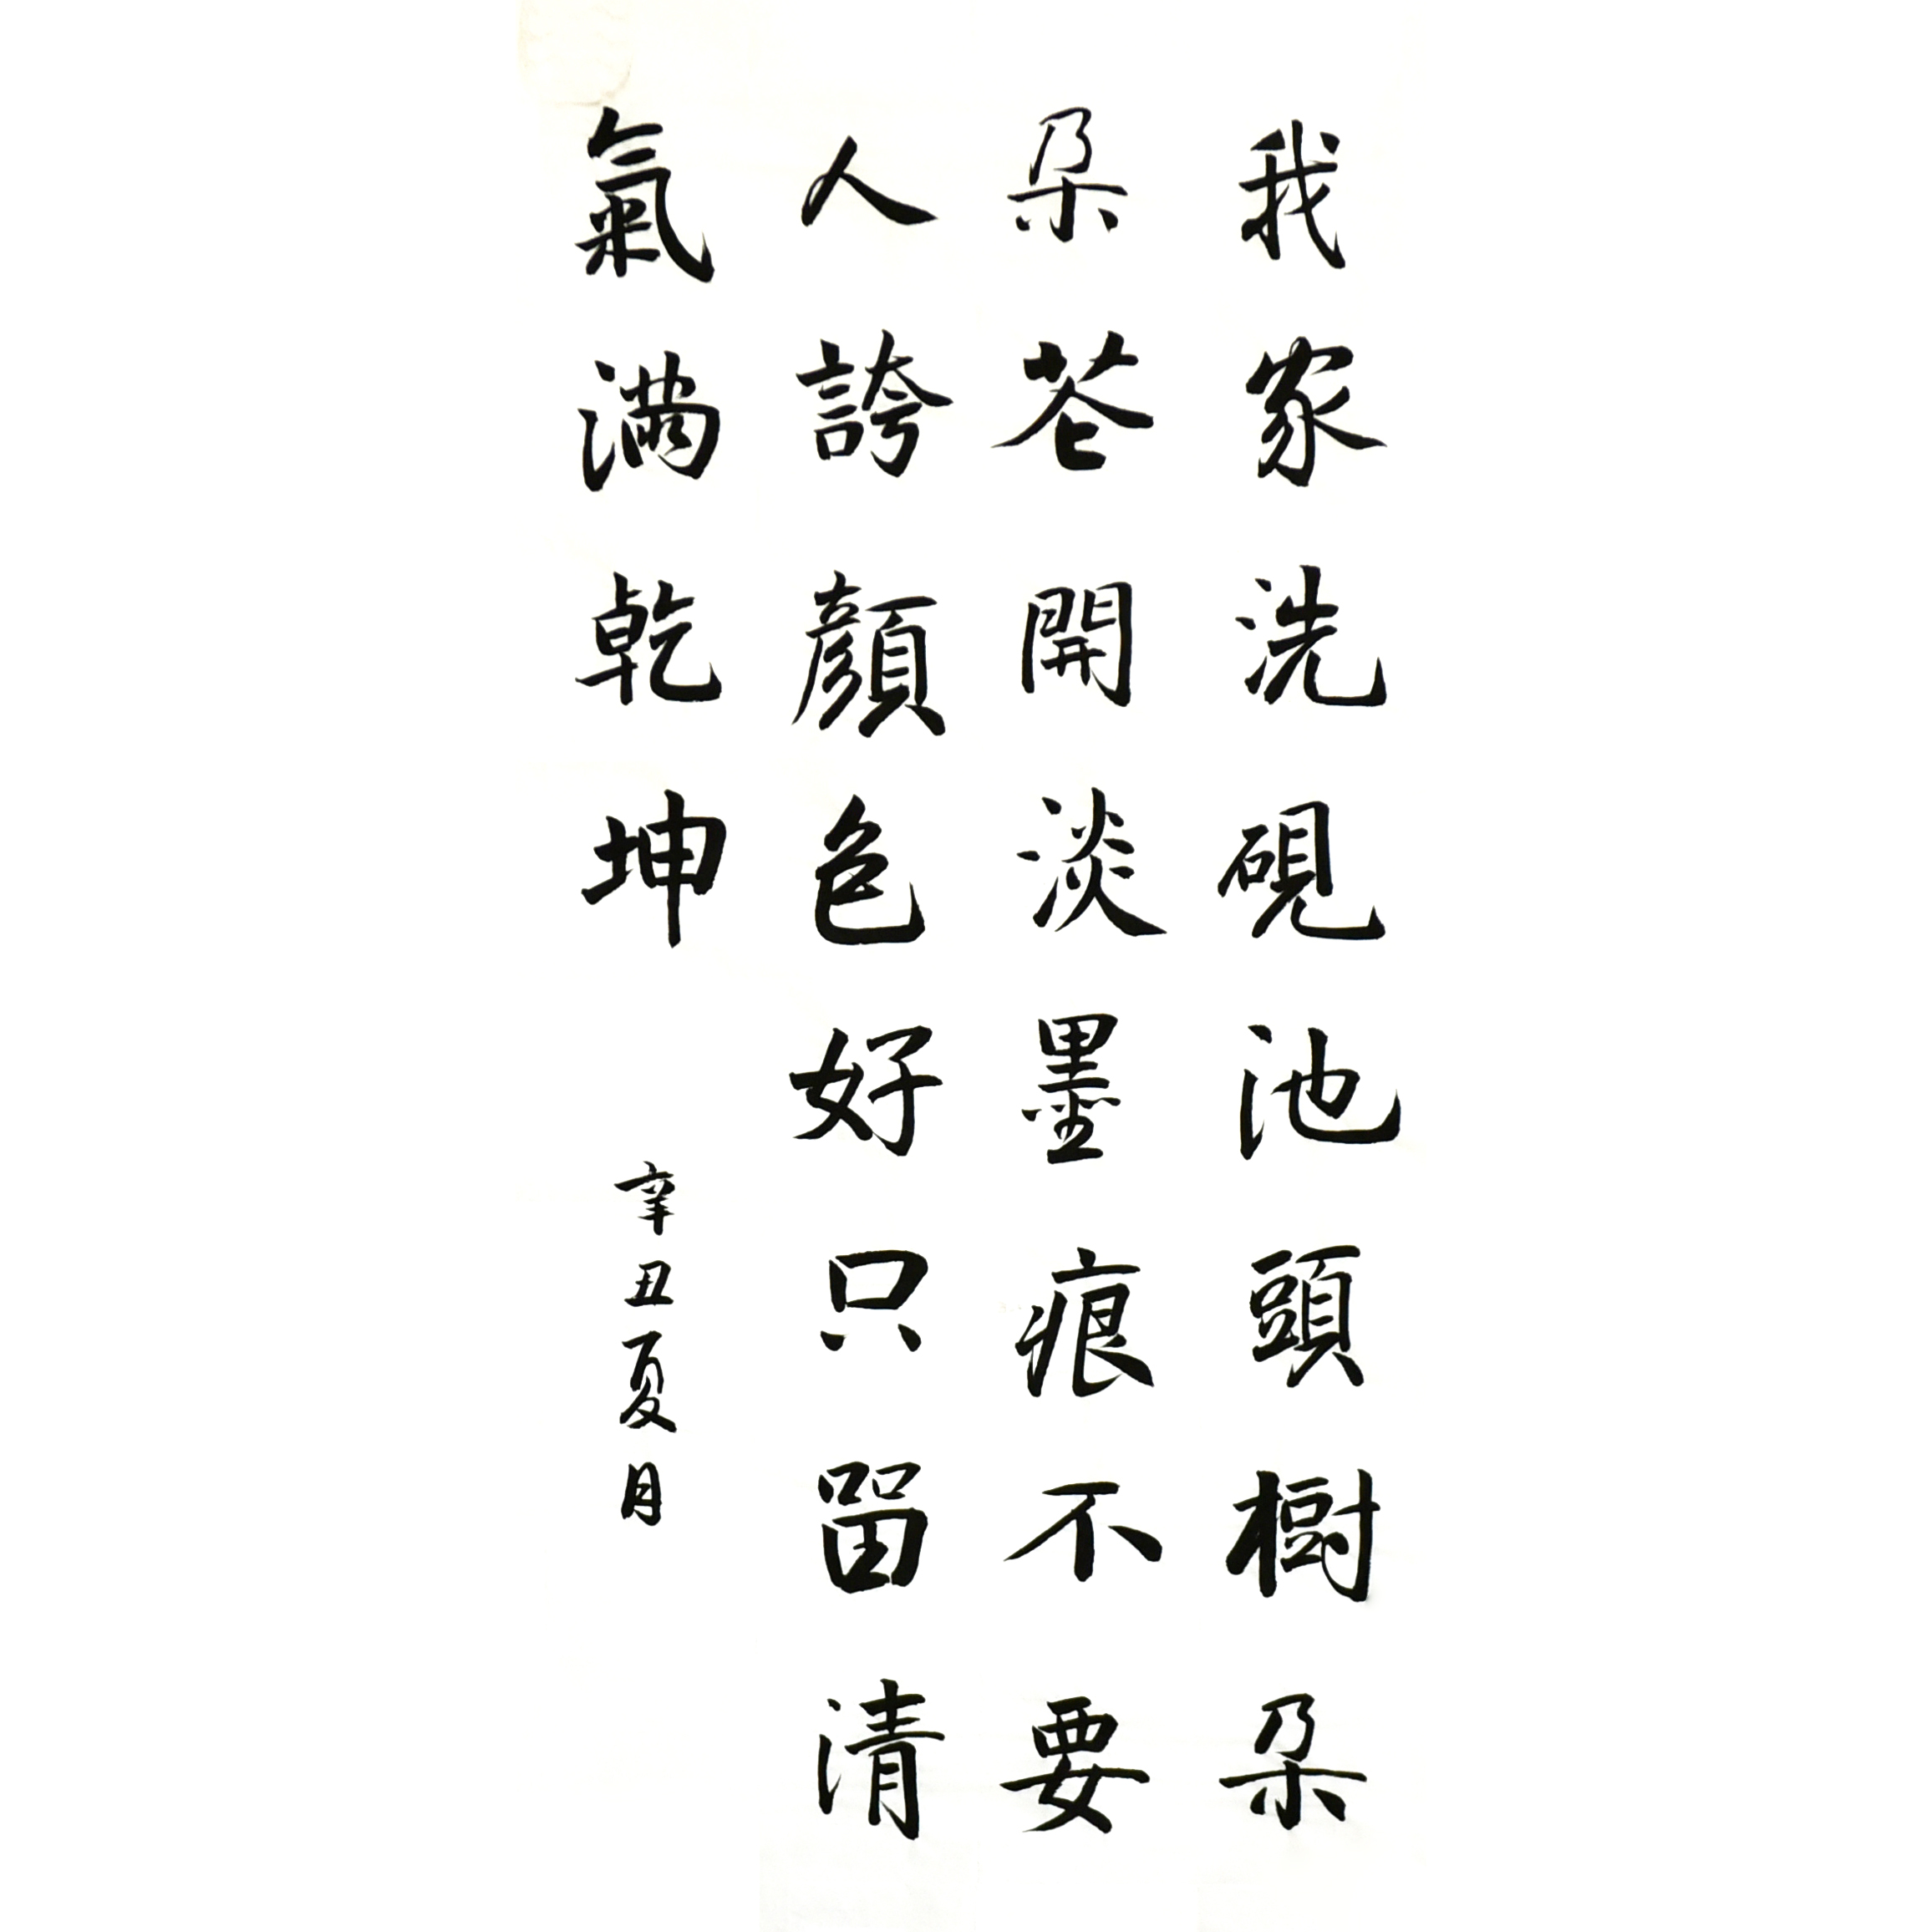 我家洗硯池頭樹朶
朶花開淡墨痕不要
人誇顔色好只留清
氣滿乾坤
辛丑夏月